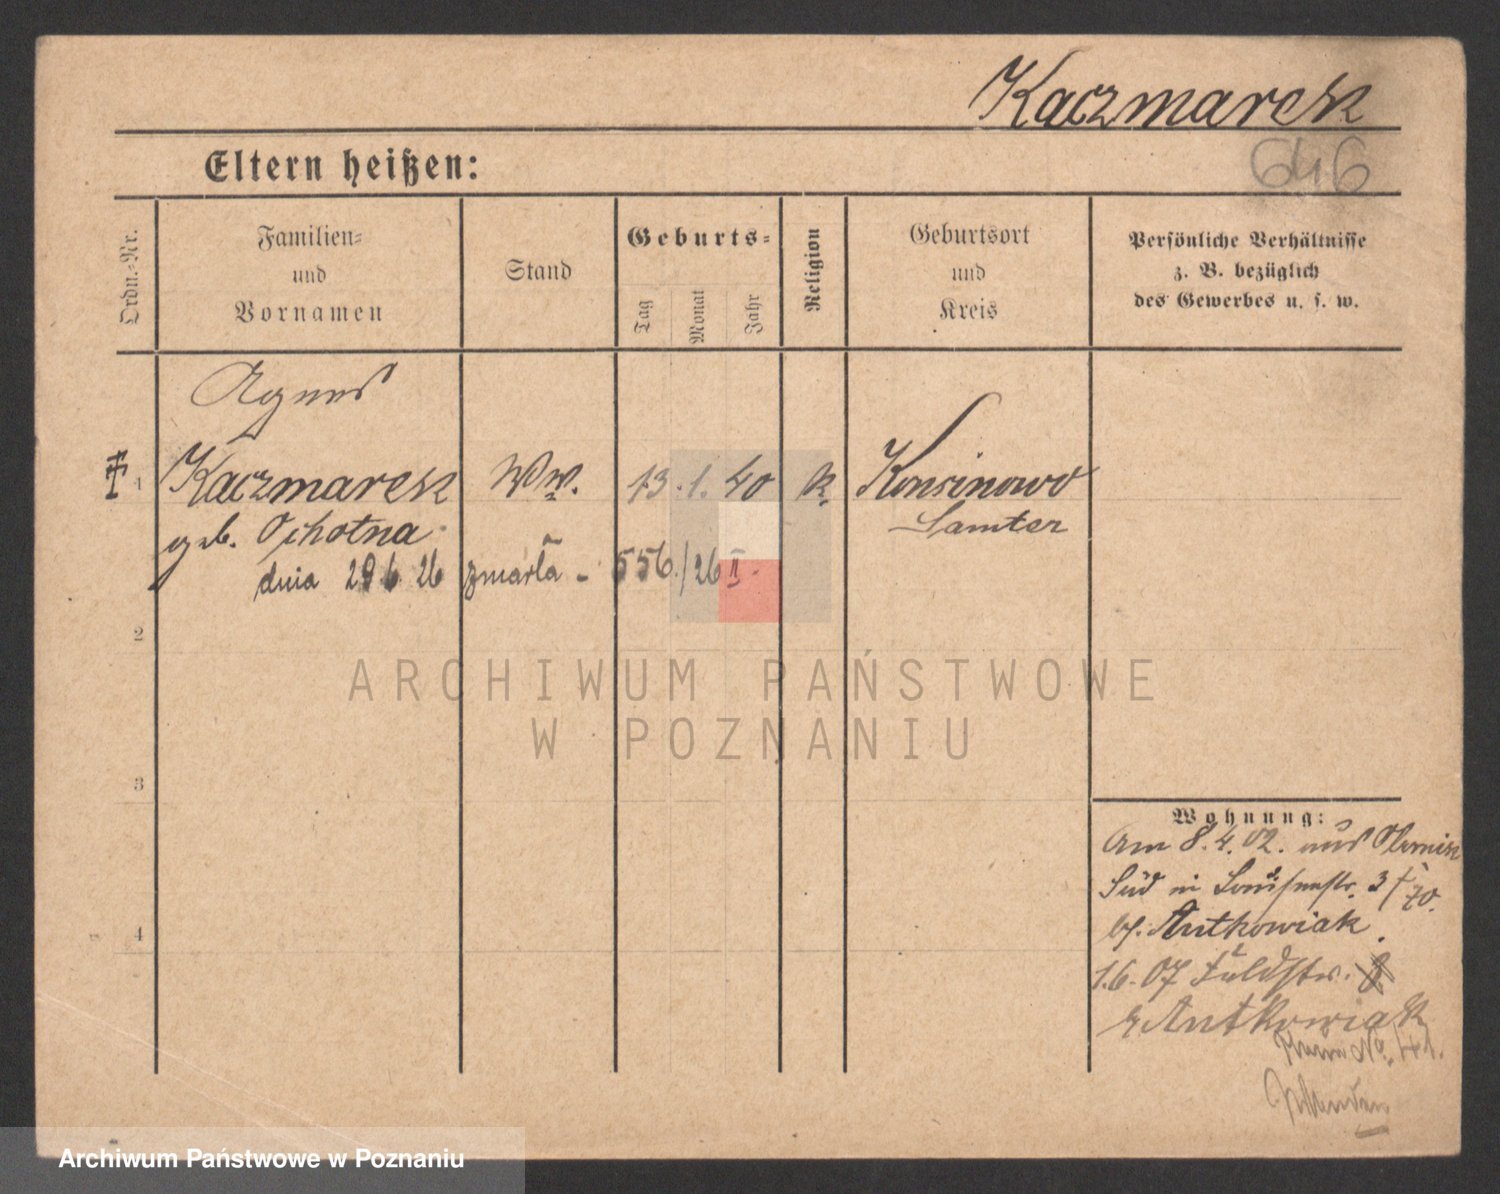 Kaczmarek
646
Eltern heißen:
Ordn.-Nr.
Familien-
und
Vornamen
Stand
Geburts-
Tag
Monat
Jahr
Religion
Geburtsort
und
Kreis
Persönliche Verhältnisse
z. B. bezüglich
des Gewerbes u. s. w.
Agnes
1 Kaczmarek Ww. 13. 1. 40 k. Konsinowo
geb. Ochotna Samter
dnia 29 6 26 zmarła - 556/26 II.
2
ARCHIWUM PAŃSTWOWE
W POZNANIU
3
Wohnung:
Am 8.4.02. aus
Süd in Louisenstr. 3
4
b/. Antkowiak.
1.6.07 Feldstr.
Antkowiak
Archiwum Państwowe w Poznaniu